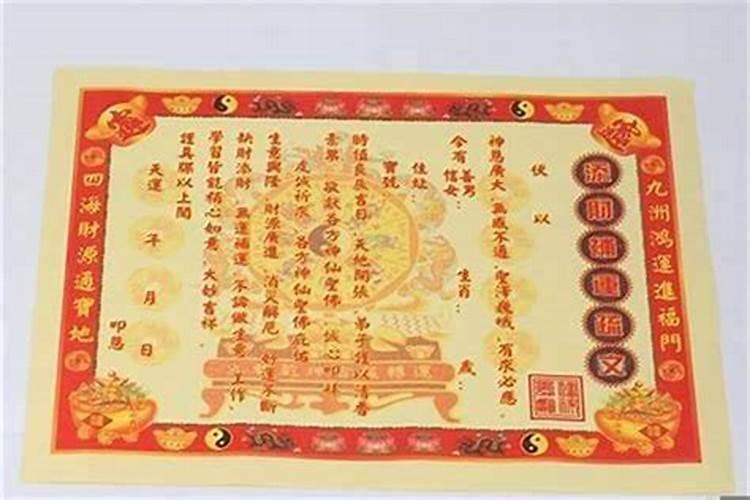 九洲鴻運進福門
添財補運疏文
伏以
神恩廣大 無感不通 聖澤巍峨 有求必應
今有善男信女：  生肖：  歲：
住址：
寶號
時值良辰吉日 天地開張 弟子謹以清香
素果 敬獻各方神仙聖佛 誠心叩拜
虔誠祈求 各方神仙聖佛庇佑
生意興隆 財源廣進 消災解厄 好運不斷
缺財添財 無運補運 不論做生意 工作、
學習皆能稱心如意 大妙吉祥
謹具疏以上聞
天運 年 月 日
叩恩
四海財源通寶地